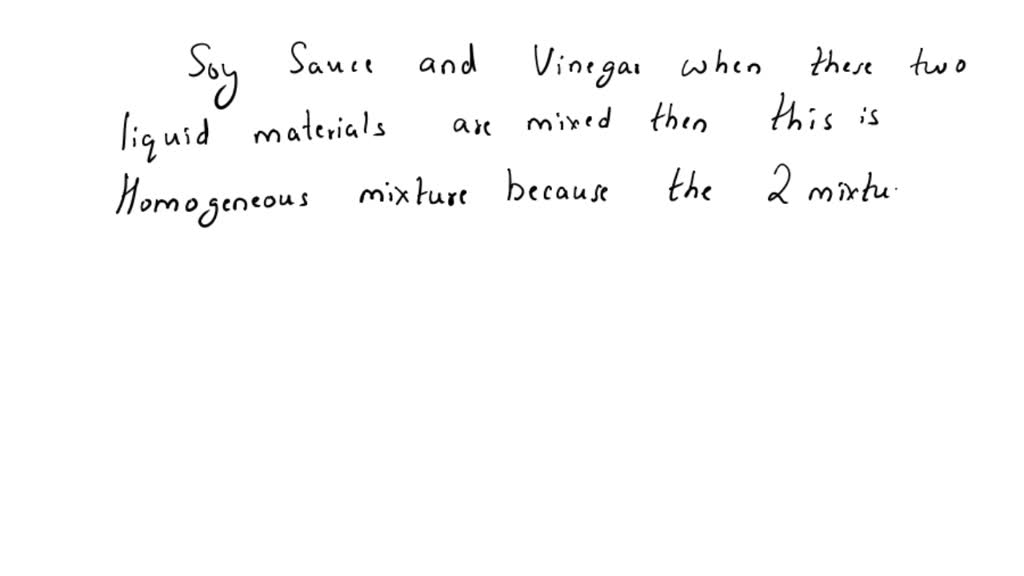 Soy Sauce and Vinegar when these two
liquid materials are mixed then this is
Homogeneous mixture because the 2 mixtu